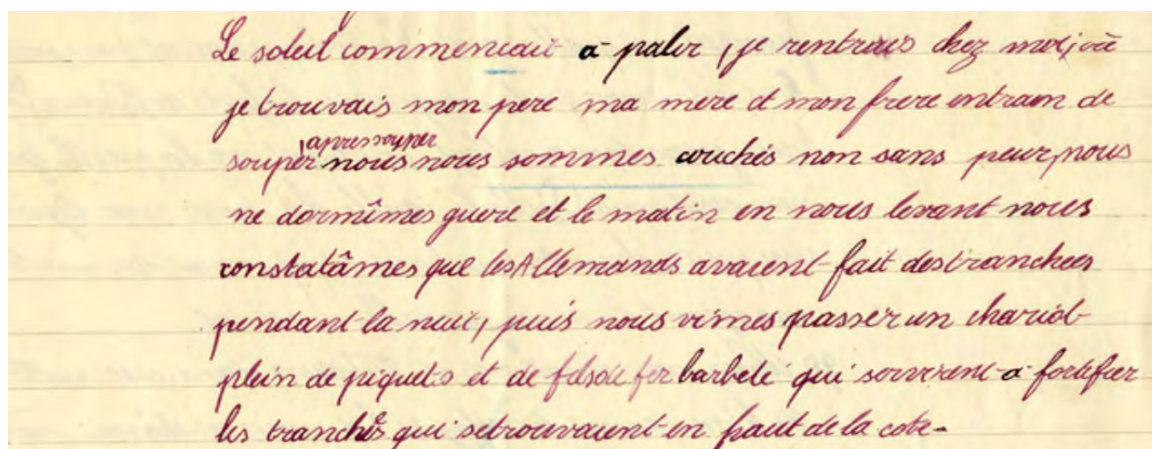 Le soleil commencait a palir, je rentrais chez moi, où
je trouvais mon pere ma mere et mon frere entrain de
souper, apres souper nous nous sommes couchés non sans peur, nous
ne dormîmes guere et le matin en nous levant nous
constatâmes que les Allemands avaient fait des tranchees
pendant la nuit, puis nous vimes passer un chariot
plein de piquets et de fils de fer barbelé qui servirent a fortifier
les tranchés qui se trouvaient en haut de la cote.